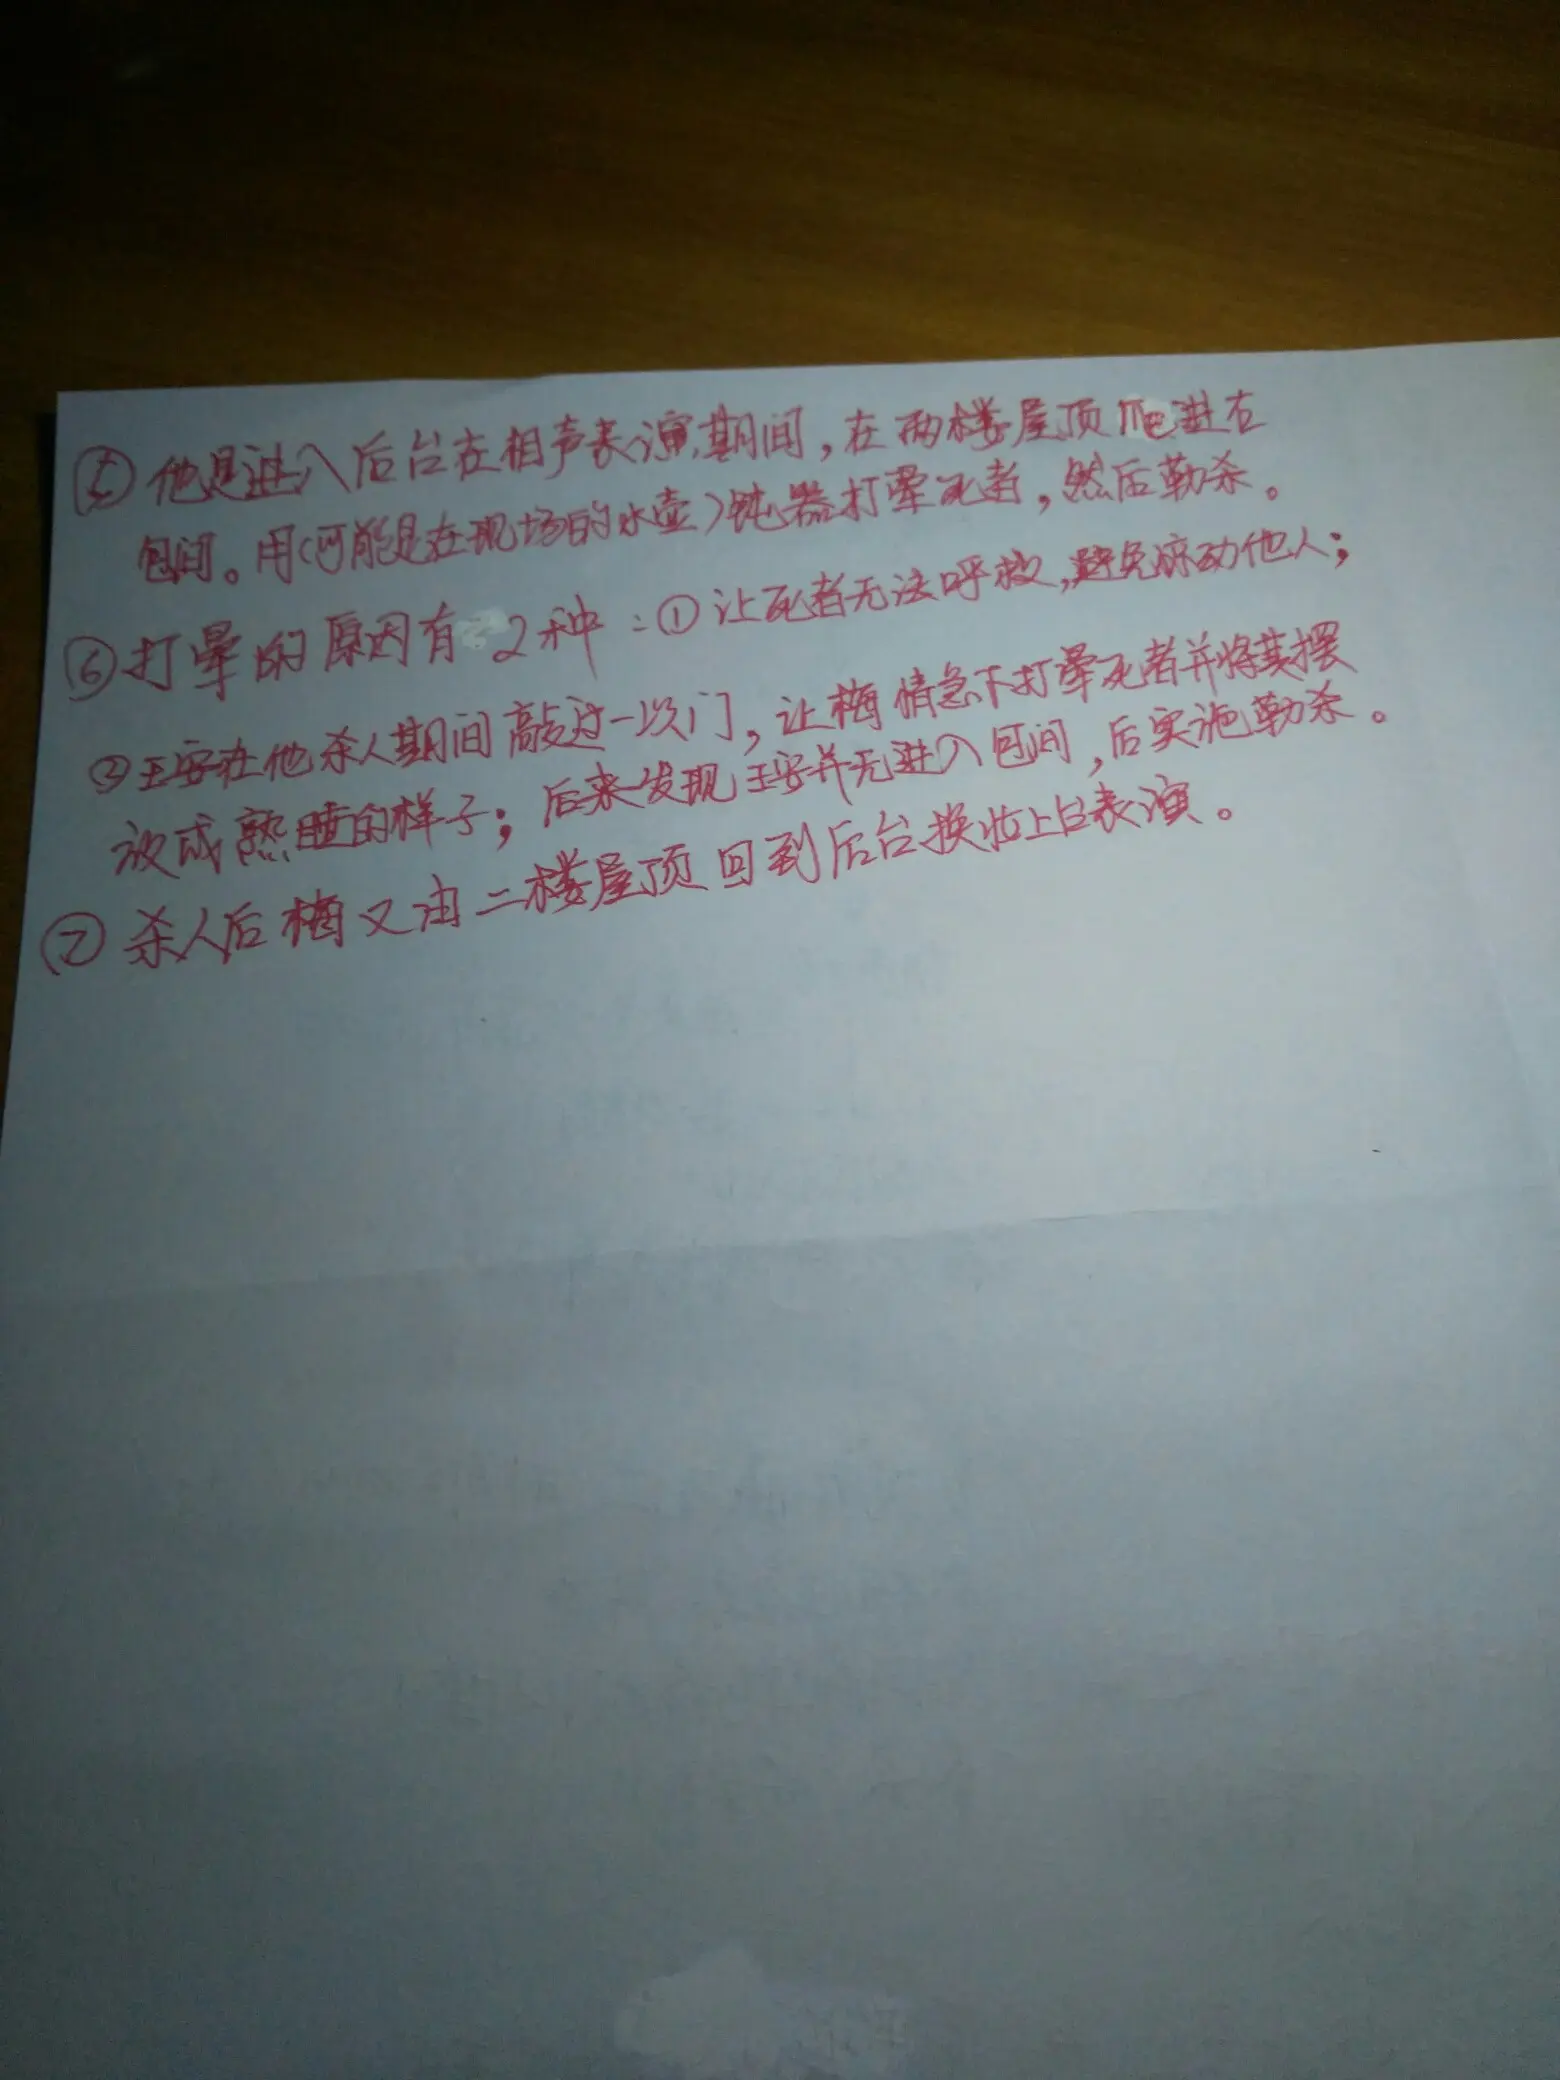 ⑤他是进入后台在相声表演期间，在两楼屋顶爬进右
包间。用（可能是在现场的水壶）钝器打晕死者，然后勒杀。
⑥打晕的原因有2种：①让死者无法呼救，避免惊动他人；
②王安在他杀人期间敲过一次门，让梅情急下打晕死者并将其摆
放成熟睡的样子；后来发现王安并无进入包间，后实施勒杀。
⑦杀人后梅又由二楼屋顶回到后台换妆上台表演。